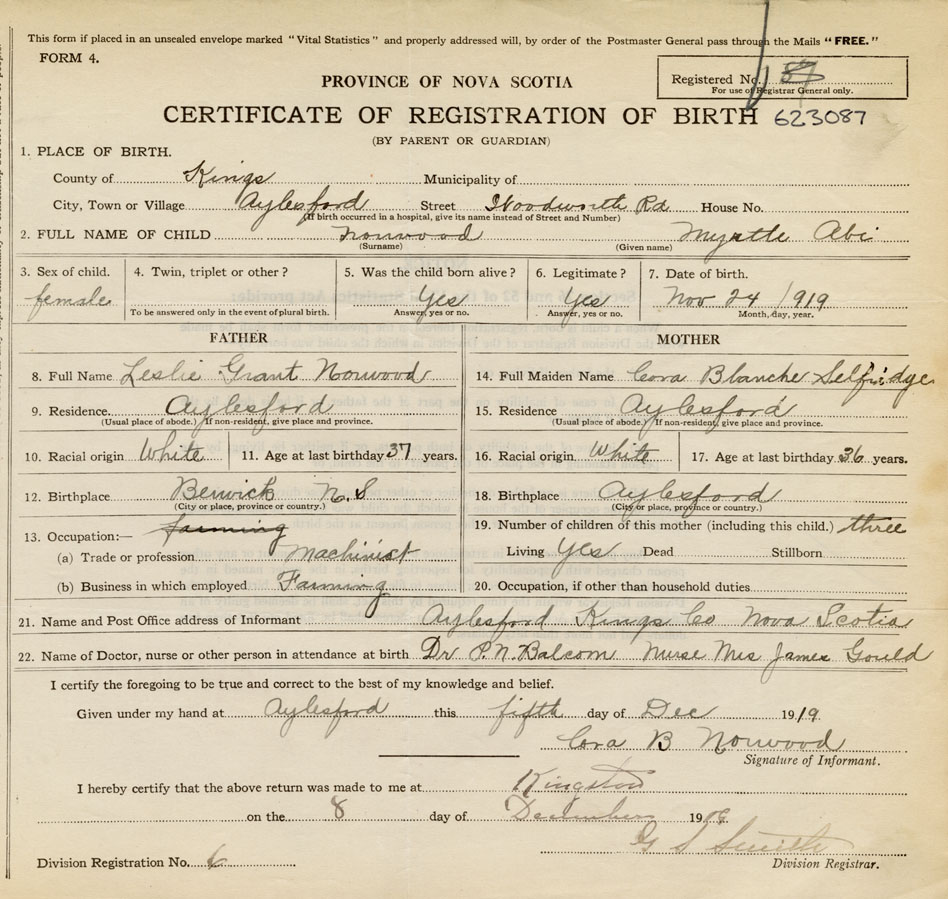 This form if placed in an unsealed envelope marked "Vital Statistics" and properly addressed will, by order of the Postmaster General pass through the Mails "FREE."
FORM 4.
PROVINCE OF NOVA SCOTIA
Registered No. 87
For use of Registrar General only.
CERTIFICATE OF REGISTRATION OF BIRTH 623087
(BY PARENT OR GUARDIAN)
1. PLACE OF BIRTH.
County of Kings Municipality of
City, Town or Village Aylesford Street Woodworth Rd House No.
(If birth occurred in a hospital, give its name instead of Street and Number)
2. FULL NAME OF CHILD Norwood Myrtle Abi
(Surname) (Given name)
3. Sex of child. 4. Twin, triplet or other? 5. Was the child born alive? 6. Legitimate? 7. Date of birth.
female Yes Yes Nov 24 1919
To be answered only in the event of plural birth. Answer, yes or no. Answer, yes or no. Month, day, year.
FATHER MOTHER
8. Full Name Leslie Grant Norwood 14. Full Maiden Name Cora Blanche Selfridge
9. Residence. Aylesford 15. Residence Aylesford
(Usual place of abode.) If non-resident, give place and province. (Usual place of abode.) If non-resident, give place and province.
10. Racial origin White 11. Age at last birthday 37 years. 16. Racial origin White 17. Age at last birthday 36 years.
12. Birthplace Berwick N.S 18. Birthplace Aylesford
(City or place, province or country.) (City or place, province or country.)
13. Occupation:— farming 19. Number of children of this mother (including this child.) three
(a) Trade or profession machinist Living Yes Dead Stillborn
(b) Business in which employed Farming 20. Occupation, if other than household duties
21. Name and Post Office address of Informant Aylesford Kings Co Nova Scotia
22. Name of Doctor, nurse or other person in attendance at birth Dr P.N. Balcom Nurse Mrs James Gould
I certify the foregoing to be true and correct to the best of my knowledge and belief.
Given under my hand at Aylesford this fifth day of Dec 1919.
Cora B Norwood
Signature of Informant.
I hereby certify that the above return was made to me at Kingston
on the 8 day of December 1919.
G S Smith
Division Registration No. 6 Division Registrar.